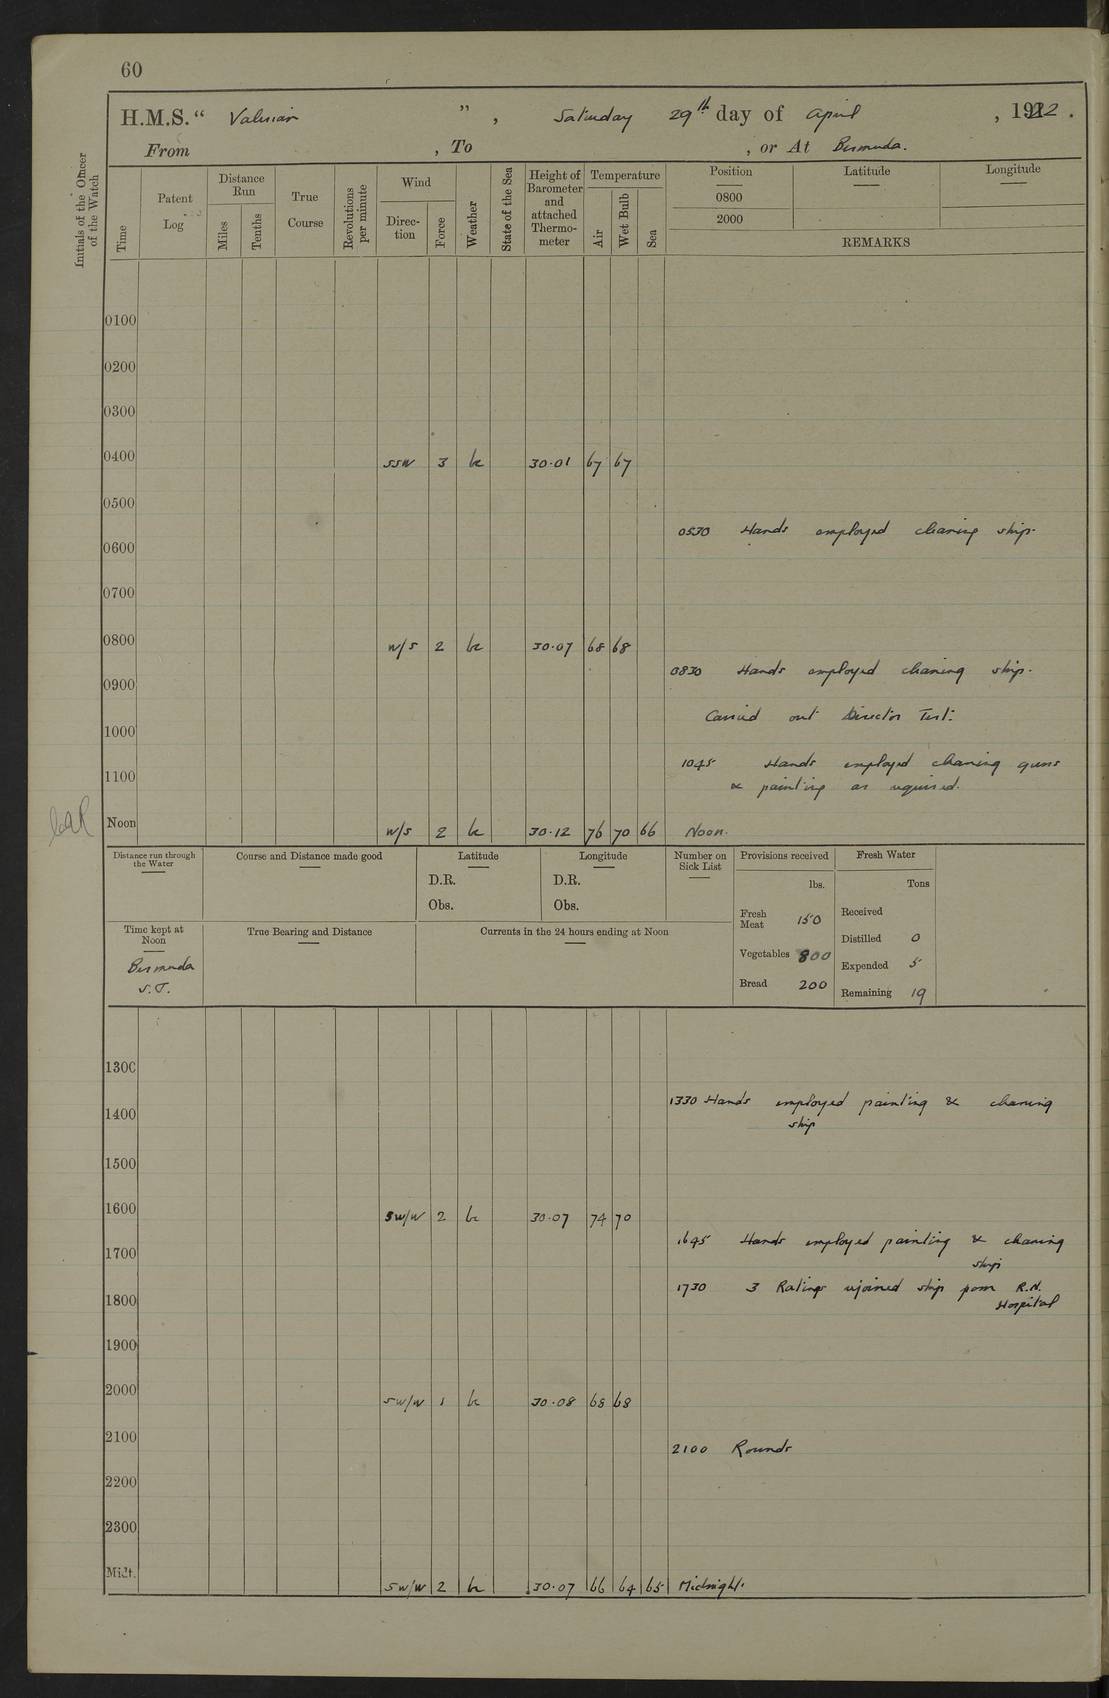 60
H.M.S. “ Valerian ” , Saturday 29th day of April , 1922 .
From , To , or At Bermuda.
Initials of the Officer of the Watch
Time
Patent Log
Distance Run
Miles
Tenths
True Course
Revolutions per minute
Wind
Direction
Force
Weather
State of the Sea
Height of Barometer and attached Thermometer
Temperature
Air
Wet Bulb
Sea
Position Latitude Longitude
0800
2000
REMARKS
0100
0200
0300
0400 SSW 3 bc 30.01 67 67
0500
0530 Hands employed cleaning ship.
0600
0700
0800 W/S 2 bc 30.07 68 68
0830 Hands employed cleaning ship.
0900
Carried out Director Test.
1000
1045 Hands employed cleaning guns
1100
& painting as required.
Noon W/S 2 bc 30.12 76 70 66 Noon.
Distance run through the Water
Course and Distance made good
Latitude
D.R.
Obs.
Longitude
D.R.
Obs.
Number on Sick List
Provisions received
lbs.
Fresh Meat 150
Vegetables 800
Bread 200
Fresh Water
Tons
Received
Distilled 0
Expended 5
Remaining 19
Time kept at Noon
Bermuda
S.T.
True Bearing and Distance
Currents in the 24 hours ending at Noon
1300
1330 Hands employed painting & cleaning
1400
ship
1500
1600 SW/W 2 bc 30.07 74 70
1645 Hands employed painting & cleaning
1700
ship
1730 3 Ratings rejoined ship from R.N.
1800
Hospital
1900
2000 SW/W 1 bc 30.08 68 68
2100
2100 Rounds
2200
2300
Midt. SW/W 2 bc 30.07 66 64 65 Midnight.